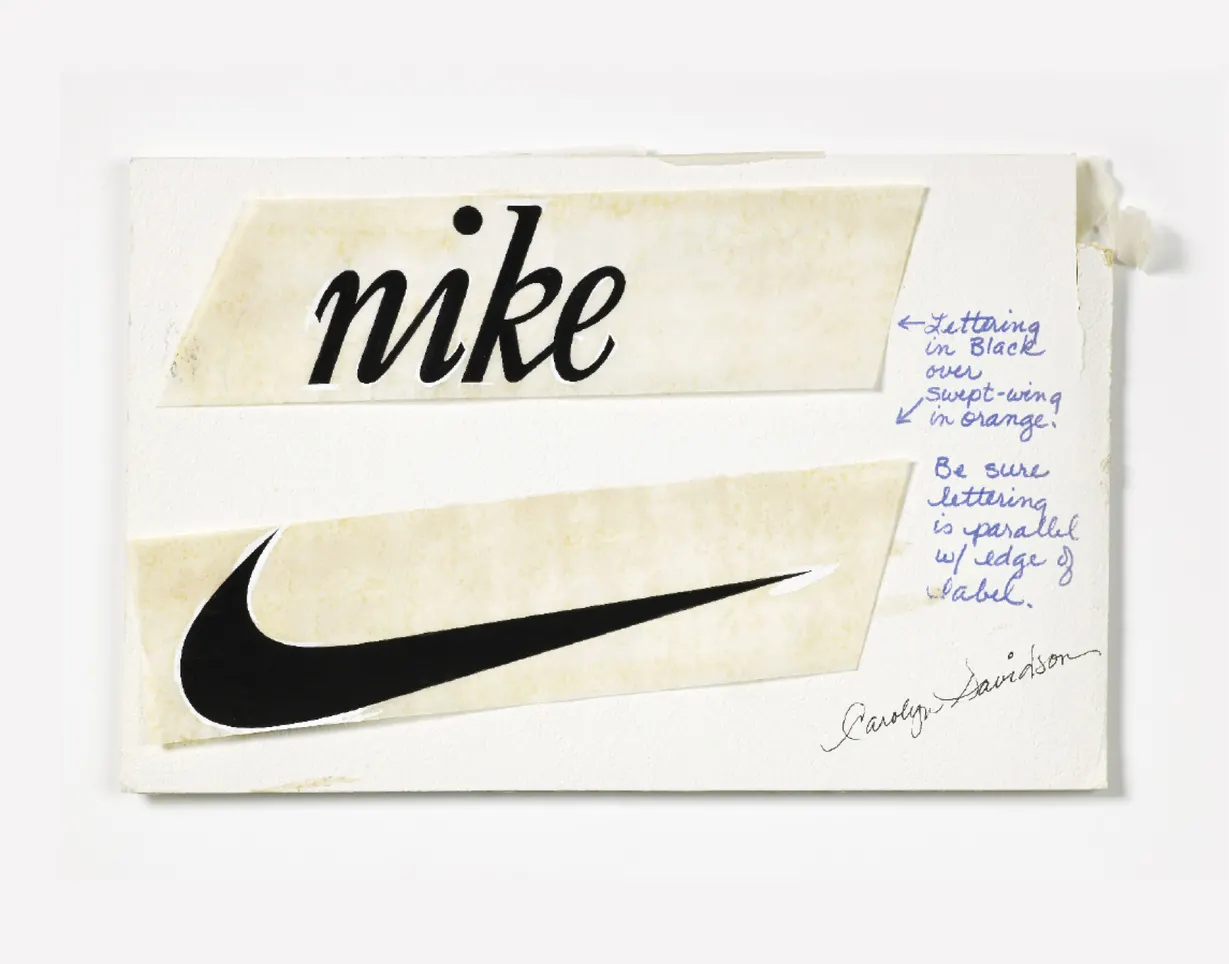 nike
←Lettering
in Black
over
swept-wing
↙in orange.
Be sure
lettering
is parallel
w/ edge of
label.
Carolyn Davidson